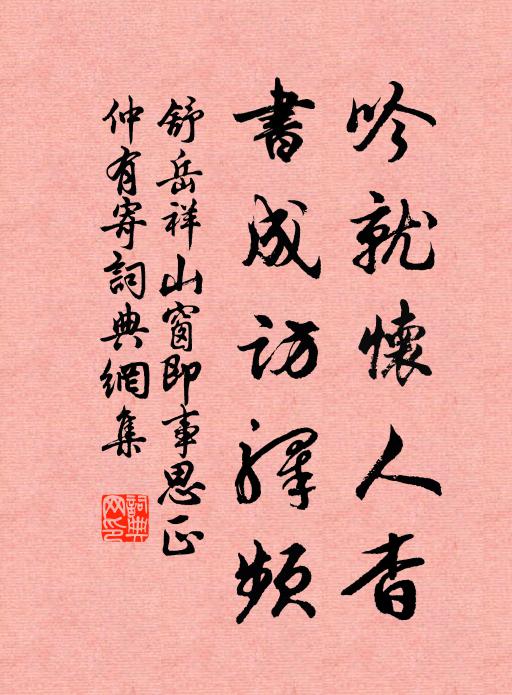 吟就懷人杳
書成訪驛頻
舒岳祥山窗即事思正
仲有寄詞典網集
詞典網印